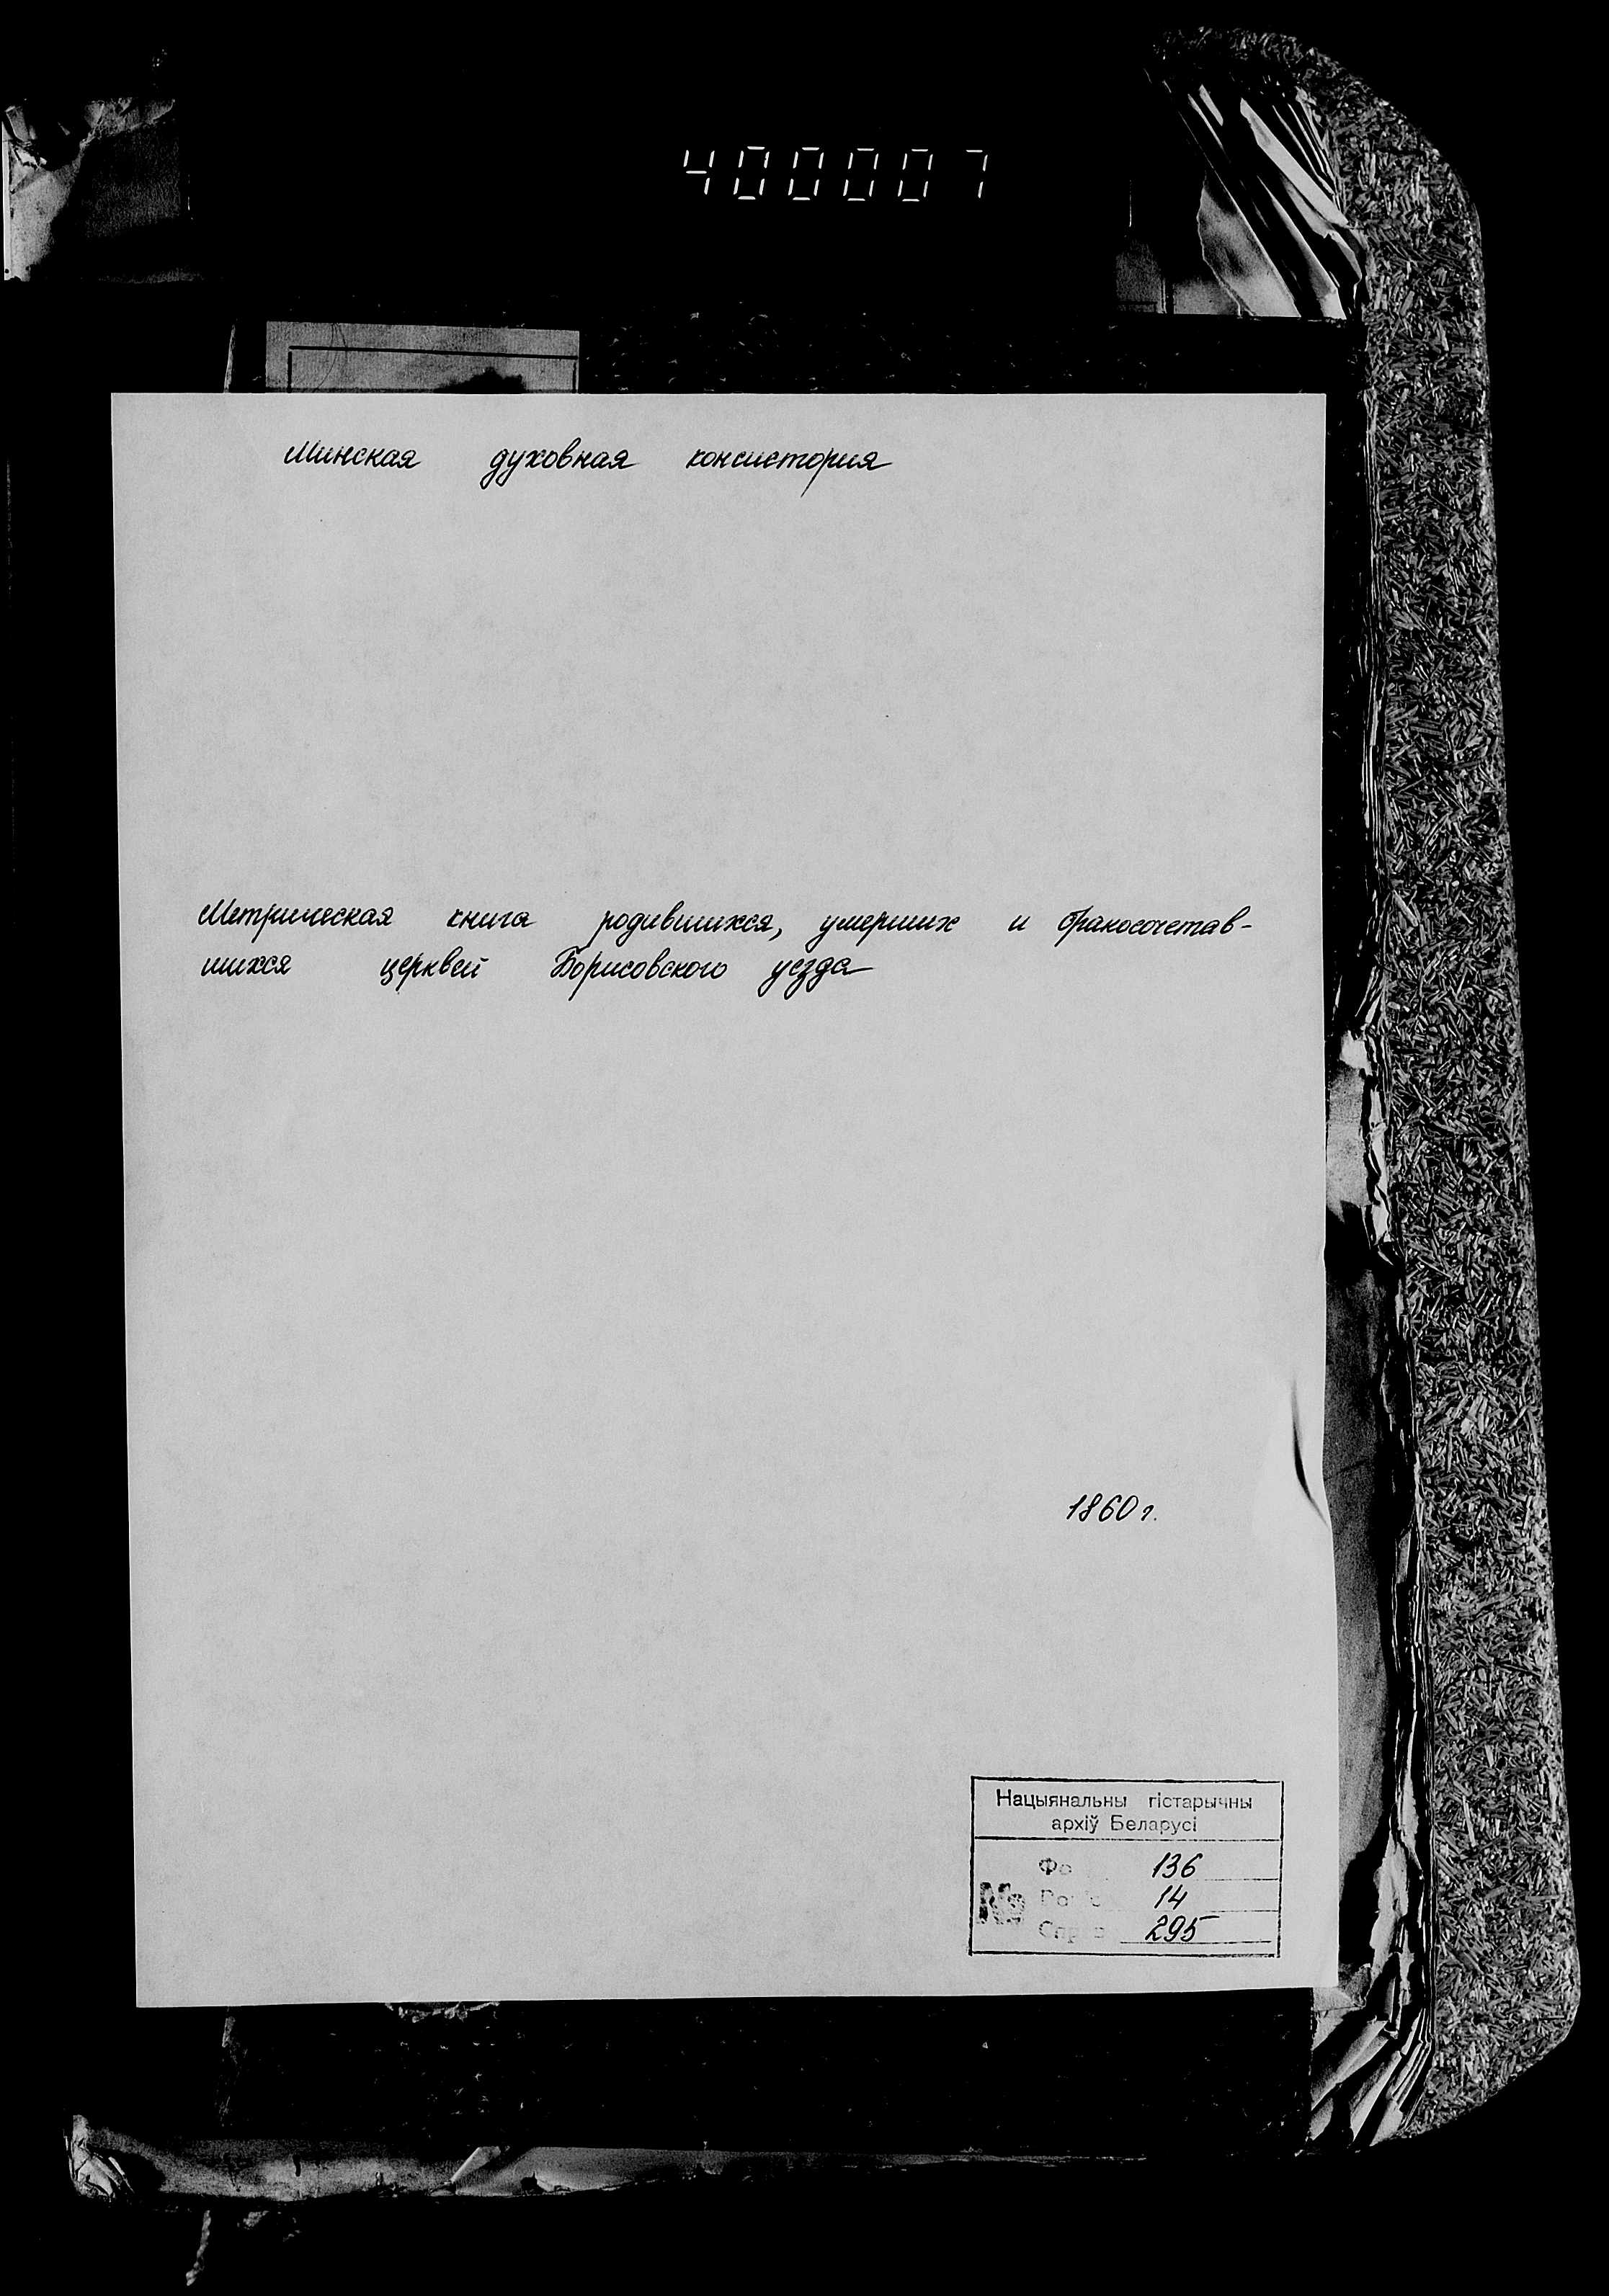 400007
Минская духовная консистория
Метрическая книга родившихся, умерших и бракосочетав-
шихся церквей Борисовского уезда
1860 г.
Нацыянальны гістарычны
архіў Беларусі
136
№ 14
295